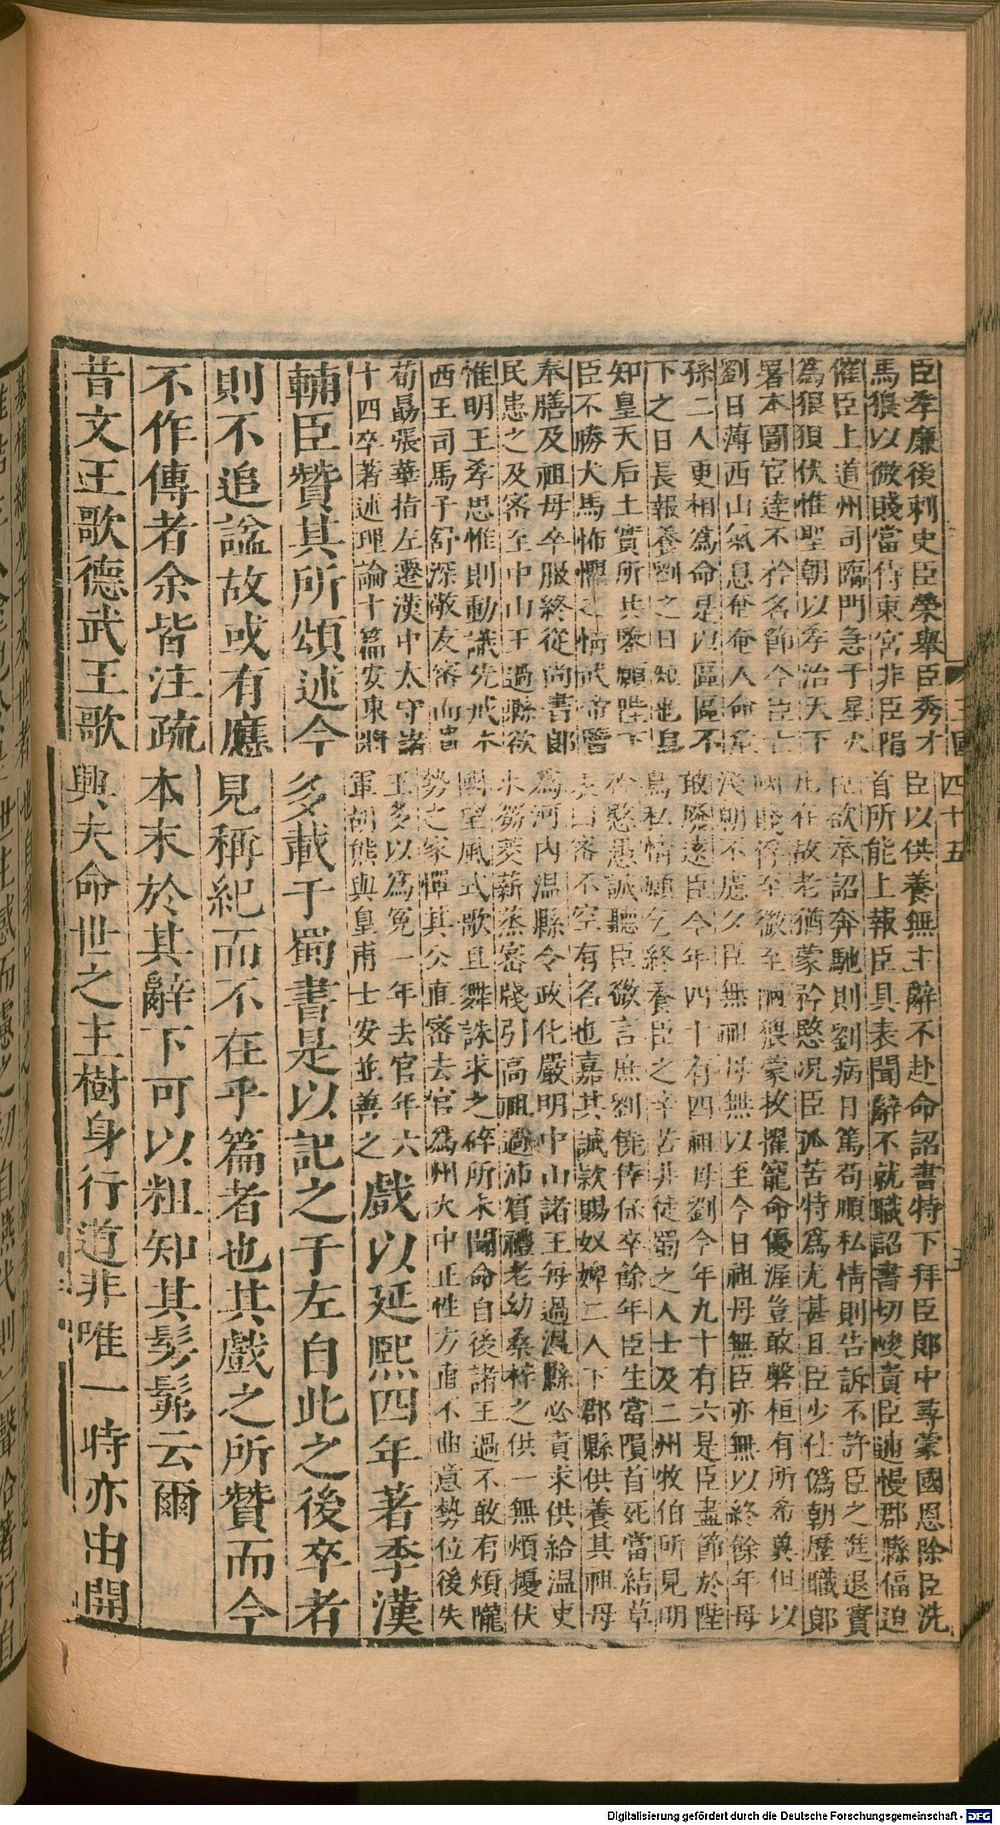 三國 四十五 五
臣孝廉後刺史臣榮舉臣秀才臣以供養無主辭不赴命詔書特下拜臣郎中尋蒙國恩除臣洗
馬猥以微賤當侍東宮非臣隕首所能上報臣具表聞辭不就職詔書切峻責臣逋慢郡縣偪迫
催臣上道州司臨門急于星火臣欲奉詔奔馳則劉病日篤苟順私情則告訴不許臣之進退實
為狼狽伏惟聖朝以孝治天下凡在故老猶蒙矜愍况臣孤苦特為尤甚且臣少仕偽朝歷職郎
署本圖宦達不矜名節今臣亡國賤俘至微至陋猥蒙拔擢寵命優渥豈敢磐桓有所希冀但以
劉日薄西山氣息奄奄人命危淺朝不慮夕臣無祖母無以至今日祖母無臣亦無以終餘年母
孫二人更相為命是以區區不敢廢遠臣今年四十有四祖母劉今年九十有六是臣盡節於陛
下之日長報養劉之日短也烏鳥私情願乞終養臣之辛苦非徒蜀之人士及二州牧伯所見明
知皇天后土實所共鑒願陛下矜愍愚誠聽臣微言庶劉僥倖保卒餘年臣生當隕首死當結草
臣不勝犬馬怖懼之情武帝覽表曰密不空有名也嘉其誠欵賜奴婢二人下郡縣供養其祖母
奉膳及祖母卒服終從尚書郎為河內温縣令政化嚴明中山諸王每過温縣必責求供給温吏
民患之及密至中山王過縣欲求芻茭薪蒸密牋引高祖過沛賓禮老幼桑梓之供一無煩擾伏
惟明王孝思惟則動識先戒本國望風式歌且舞誅求之碎所未聞命自後諸王過不敢有煩隴
西王司馬子舒深敬友密而貴勢之家憚其公直密去官為州大中正性方直不曲意勢位後失
荀勗張華指左遷漢中太守諸王多以為寃一年去官年六
十四卒著述理論十篇安東將軍胡熊與皇甫士安並善之
戲以延熙四年著季漢
輔臣贊其所頌述今多載于蜀書是以記之于左自此之後卒者
則不追諡故或有應見稱紀而不在乎篇者也其戲之所贊而今
不作傳者余皆注疏本末於其辭下可以粗知其髣髴云爾
昔文王歌德武王歌興夫命世之主樹身行道非唯一時亦由開
Digitalisierung gefördert durch die Deutsche Forschungsgemeinschaft - DFG